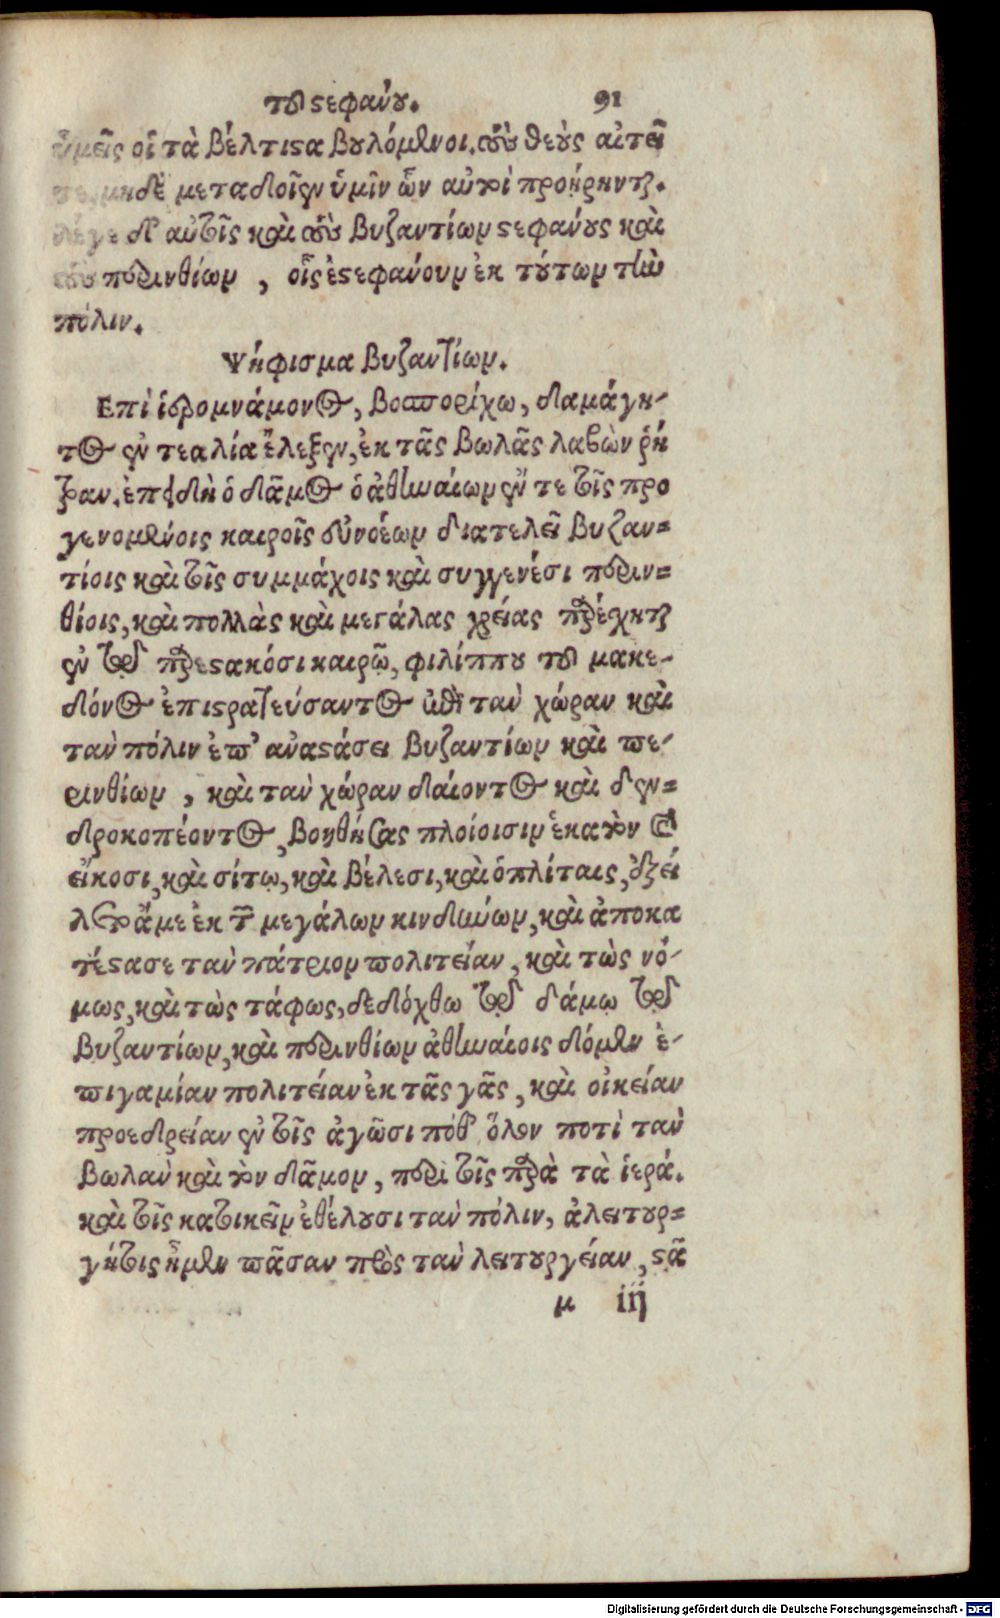 τοῦ στεφάνου. 91
ὑμεῖς οἱ τὰ βέλτιστα βουλόμενοι τοὺς θεοὺς αἰτεῖ
τε, μηδὲ μεταδοῖεν ὑμῖν ὧν αὐτοὶ προῄρηνται.
λέγε δ' αὐτοῖς καὶ τοὺς Βυζαντίων στεφάνους καὶ
τοὺς περινθίων, οἷς ἐστεφάνουν ἐκ τούτων τὴν
πόλιν.
Ψήφισμα Βυζαντίων.
Επὶ ἱερομνάμονος, βοσπορίχω, δαμάγη-
τος ἐν τεαλία ἔλεξεν, ἐκ τᾶς βωλᾶς λαβὼν ῥή
τραν. ἐπειδὴ ὁ δᾶμος ὁ ἀθηναίων ἔν τε τοῖς προ
γενομένοις καιροῖς εὐνοέων διατελεῖ βυζαν=
τίοις καὶ τοῖς συμμάχοις καὶ συγγενέσι περιν=
θίοις, καὶ πολλὰς καὶ μεγάλας χρείας παρέχηται
ἐν τῷ παρεστακόσι καιρῷ, φιλίππου τοῦ μακε-
δόνος ἐπιστρατεύσαντος ἐπὶ τὰν χώραν καὶ
τὰν πόλιν ἐπ' ἀναστάσει βυζαντίων καὶ πε-
ρινθίων, καὶ τὰν χώραν δαίοντος καὶ δεν=
δροκοπέοντος, βοηθήσας πλοίοισιν ἑκατὸν καὶ
εἴκοσι, καὶ σίτῳ, καὶ βέλεσι, καὶ ὁπλίταις, ἐξεί
λετο ἄμε ἐκ τῶν μεγάλων κινδύνων, καὶ ἀποκα
τέστασε τὰν πάτριον πολιτείαν, καὶ τὼς νό-
μως, καὶ τὼς τάφως, δεδόχθω τῷ δάμῳ τῷ
Βυζαντίων, καὶ περινθίων ἀθηναίοις δόμεν ἐ-
πιγαμίαν πολιτείαν ἐκ τᾶς γᾶς, καὶ οἰκείαν
προεδρείαν ἐν τοῖς ἀγῶσι πόθ' ὅλον ποτὶ τὰν
βωλὰν καὶ τὸν δᾶμον, περὶ τοῖς παρὰ τὰ ἱερά.
καὶ τοῖς κατοικεῖν ἐθέλουσι τὰν πόλιν, ἀλειτουρ=
γήτοις ἦμεν πᾶσαν πρὸς τὰν λειτουργείαν, στᾶ
μ iij
Digitalisierung gefördert durch die Deutsche Forschungsgemeinschaft - DFG